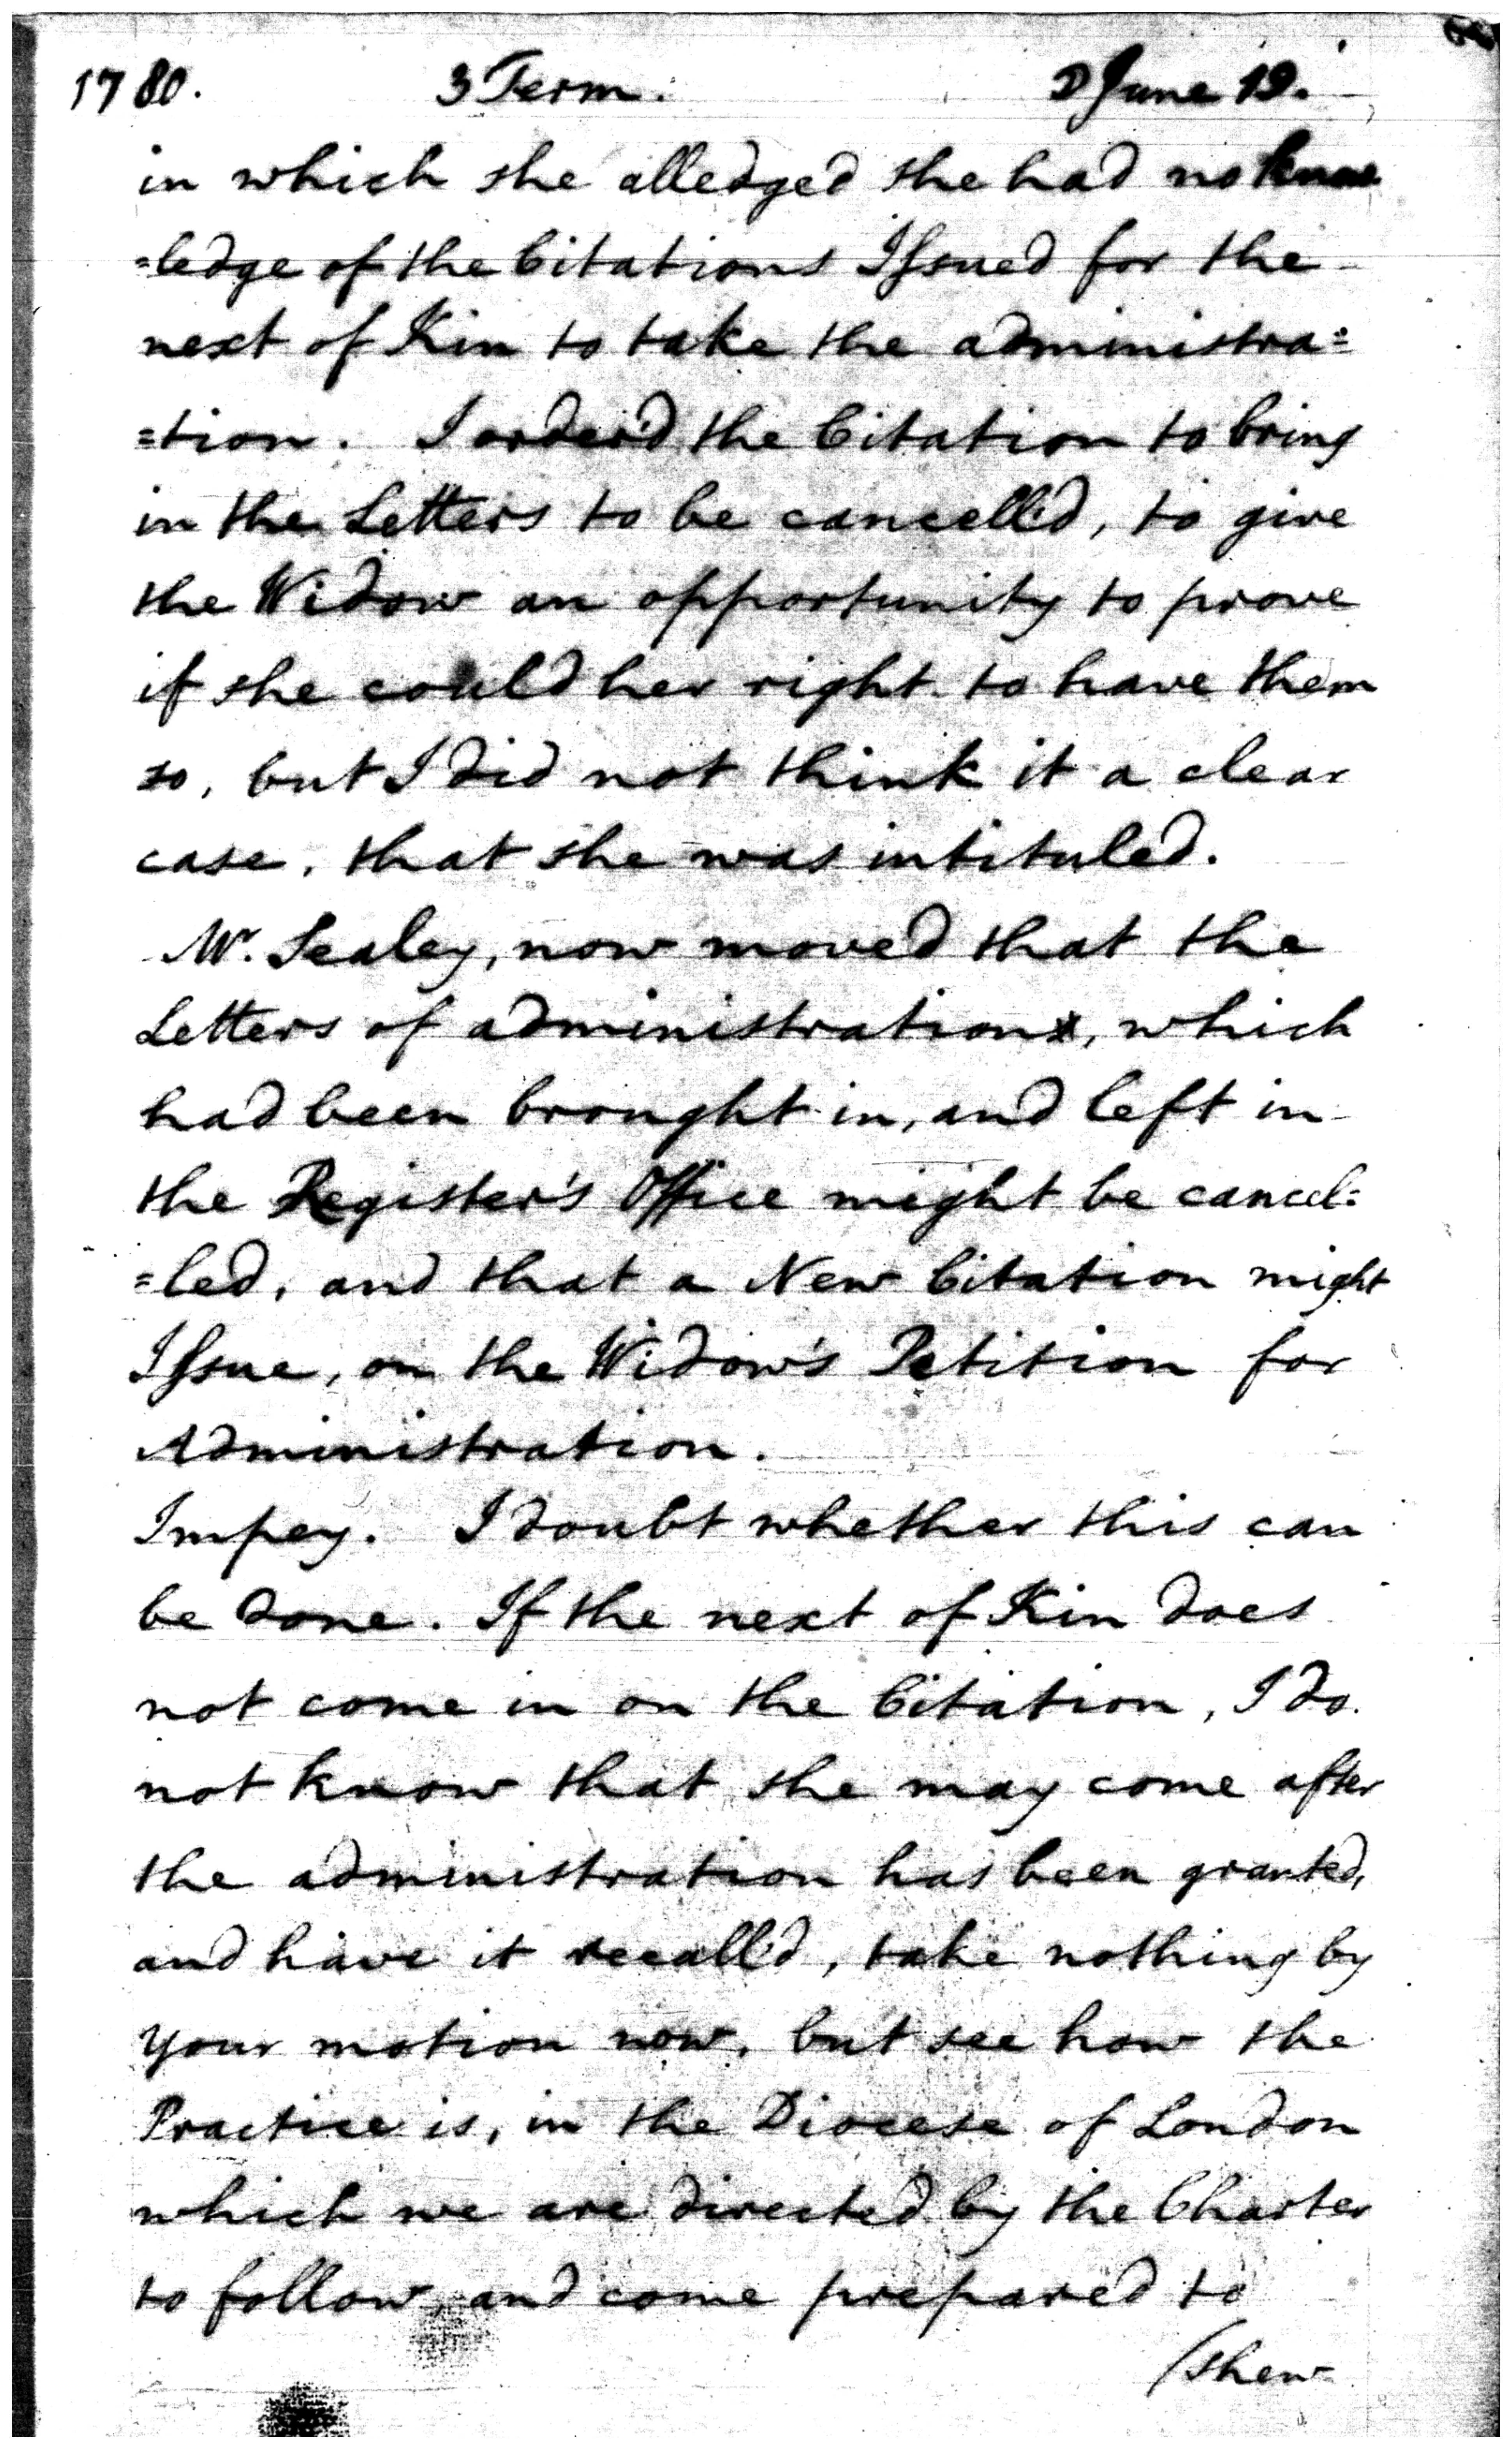 1780. 3 Term. D June 19.
in which she alledged she had no know
=ledge of the Citations Issued for the
next of Kin to take the administra=
=tion. I order'd the Citation to bring
in the Letters to be cancell'd, to give
the Widow an opportunity to prove
if she could her right to have them
so, but I did not think it a clear
case, that she was intituled.
Mr. Sealey, now moved that the
Letters of administration, which
had been brought in, and left in
the Register's Office might be cancel=
=led, and that a New Citation might
Issue, on the Widow's Petition for
Administration.
Impey. I doubt whether this can
be done. If the next of Kin does
not come in on the Citation, I do
not know that she may come after
the administration has been granted,
and have it recall'd, take nothing by
your motion now, but see how the
Practice is, in the Diocese of London
which we are directed by the Charter
to follow, and come prepared to
/shew